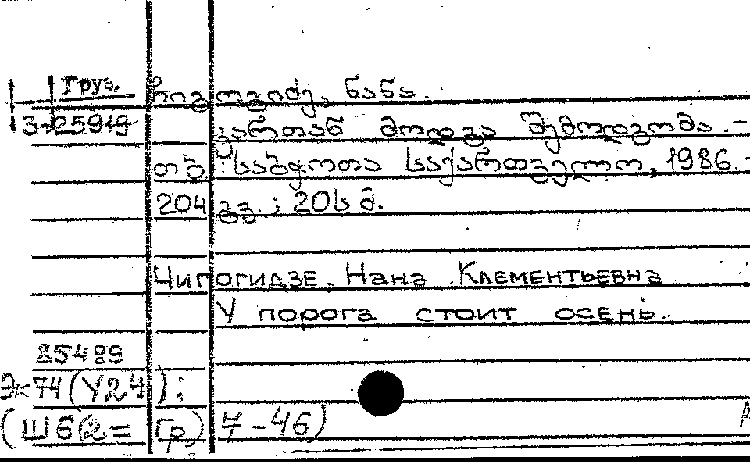 Груз. ჩიგოგიძე, ნანა.
3-25919 კართან მოდგა შემოდგომა. -
თბ.: საბჭოთა საქართველო, 1986. -
204 გვ.; 20 სმ.
Чигогидзе, Нана Клементьевна
У порога стоит осень.
25489
Эк74(У24):
(Ш6(2=Гр)7-46)